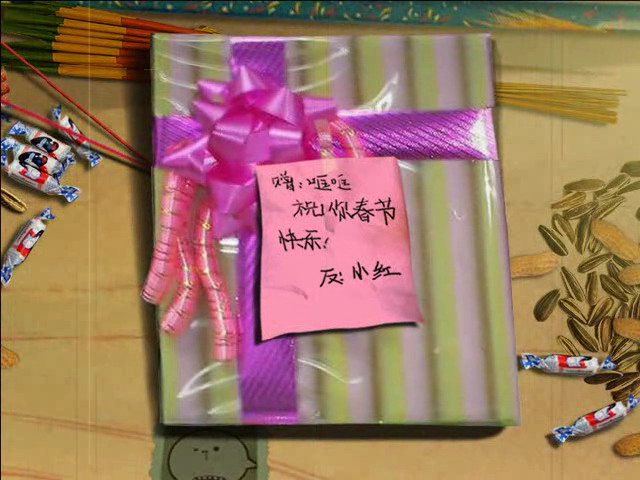 赠:哐哐
祝你春节
快乐!
友:小红